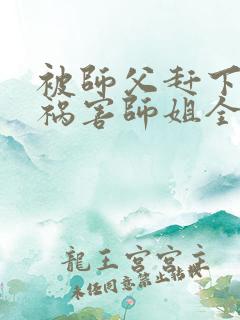 被師父赶下
祸害師姐全
龍王宮宮主
未经同意禁止转载